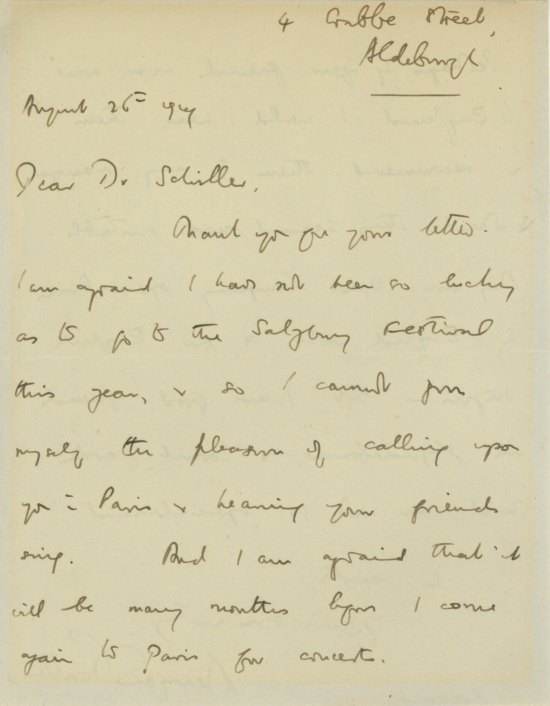 4 Crabbe Street,
Aldeburgh
August 26th 1947
Dear Dr Schiller,
Thank you for your letter.
I am afraid I have not been so lucky
as to go to the Salzburg Festival
this year, & so I cannot give
myself the pleasure of calling upon
you in Paris & hearing your friends
sing. And I am afraid that it
will be many months before I come
again to Paris for concerts.